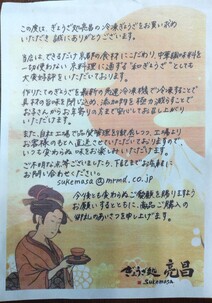 この度は、ぎょうざ処亮昌の冷凍ぎょうざをお買い求め
いただき誠にありがとうございます。
当店は、できるだけ京都の食材にこだわり、中華調味料を
一切使わない京料理に通ずる“和のぎょうざ”としても
大変好評をいただいております。
作りたてのぎょうざを最新の急速冷凍機で冷凍することで
具材の旨味を閉じ込め、
お子さんからお年寄りの方まで安心してお召し上がり
いただけます。
また、自社工場で品質管理を徹底しつつ、工場より
お客様のもとへ直送させていただいておりますので、
いつも変わらぬ味をお楽しみいただけます。
ご不明な点等ございましたら、下記までお気軽に
お問い合わせください。
sukemasa@mrmd.co.jp
今後とも変わらぬご愛顧を賜りますよう
お願いするとともに、商品ご購入の
お礼のあいさつを申し上げます。
ぎょうざ処 亮昌
Sukemasa